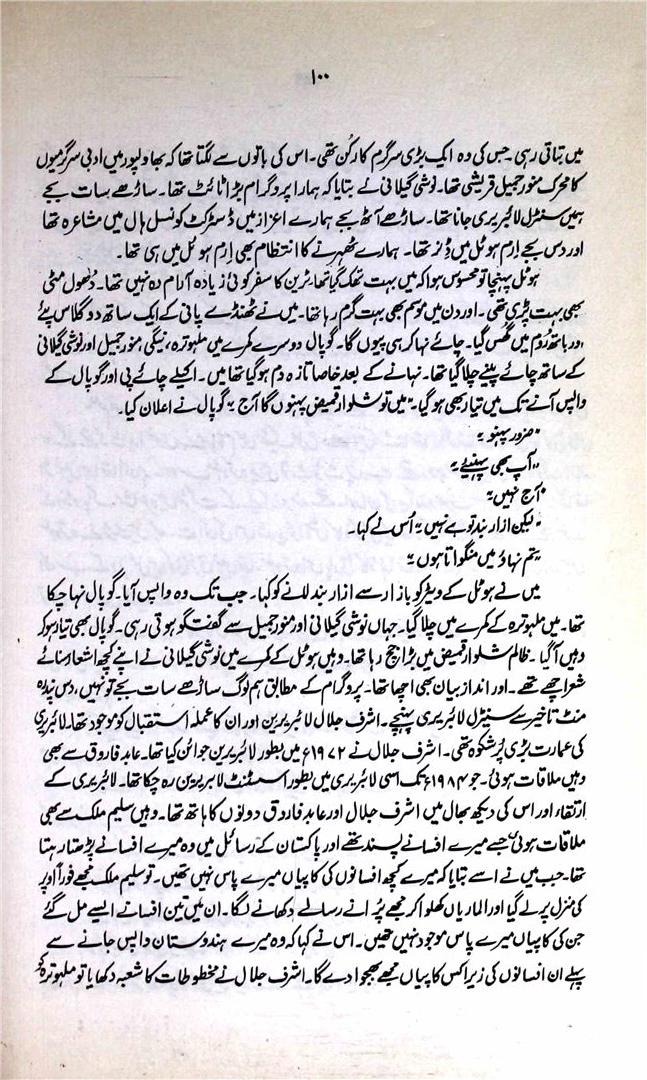 ۱۰۰
میں بتاتی رہی۔ جس کی وہ ایک بڑی سرگرم کارکُن تھی۔ اس کی باتوں سے لگتا تھا کہ بھاولپور میں ادبی سرگرمیوں
کا محرک منور جمیل قریشی تھا۔ نوشی گیلانی نے بتایا کہ ہمارا پروگرام بڑا ٹائٹ تھا۔ ساڑھے سات بجے
ہمیں سنٹرل لائبریری جانا تھا۔ ساڑھے آٹھ بجے ہمارے اعزاز میں ڈسٹرکٹ کونسل ہال میں مشاعرہ تھا
اور دس بجے اِرم ہوٹل میں ڈنر تھا۔ ہمارے ٹھہرنے کا انتظام بھی اِرم ہوٹل میں ہی تھا۔
ہوٹل پہنچا تو محسوس ہوا کہ میں بہت تھک گیا تھا، ٹرین کا سفر کوئی زیادہ آرام دہ نہیں تھا۔ دُھول مٹی
بھی بہت پڑی تھی۔ اور دن میں موسم بھی بہت گرم رہا تھا۔ میں نے ٹھنڈے پانی کے ایک ساتھ دو گلاس پئے
اور باتھ رُوم میں گھُس گیا۔ چائے نہا کر ہی پیوں گا۔ گوپال دوسرے کمرے میں ملہوترہ، نیگی، منور جمیل اور نوشی گیلانی
کے ساتھ چائے پینے چلا گیا تھا۔ نہانے کے بعد خاصا تازہ دم ہو گیا تھا میں۔ اکیلے چائے پی اور گوپال کے
واپس آنے تک میں تیار بھی ہو گیا۔ "میں تو شلوار قمیض پہنوں گا آج" گوپال نے اعلان کیا۔
"ضرور پہنو"
"آپ بھی پہنیے"
"آج نہیں"
"لیکن ازار بند تو ہے نہیں" اُس نے کہا۔
"تم نہاؤ میں منگواتا ہوں"
میں نے ہوٹل کے ویٹر کو بازار سے ازار بند لانے کو کہا۔ جب تک وہ واپس آیا۔ گوپال نہا چکا
تھا۔ میں ملہوترہ کے کمرے میں چلا گیا۔ جہاں نوشی گیلانی اور منور جمیل سے گفتگو ہوتی رہی۔ گوپال بھی تیار ہو کر
وہیں آ گیا۔ ظالم شلوار قمیض میں بڑا جچ رہا تھا۔ وہیں ہوٹل کے کمرے میں نوشی گیلانی نے اپنے کچھ اشعار سنائے
شعر اچھے تھے۔ اور انداز بیان بھی اچھا تھا۔ پروگرام کے مطابق ہم لوگ ساڑھے سات بجے تو نہیں، دس پندرہ
منٹ تاخیر سے سنیٹرل لائبریری پہنچے۔ اشرف جلال لائبریرین اور ان کا عملہ استقبال کو موجود تھا۔ لائبریری
کی عمارت بڑی پُر شکوہ تھی۔ اشرف جلال نے ۱۹۷۲ء میں بطور لائبریرین جوائن کیا تھا۔ عابد فاروق سے بھی
وہیں ملاقات ہوئی۔ جو ۱۹۸۴ء تک اسی لائبریری میں بطور اسسٹنٹ لائبریرین رہ چکا تھا۔ لائبریری کے
ارتقاء اور اس کی دیکھ بھال میں اشرف جلال اور عابد فاروق دونوں کا ہاتھ تھا۔ وہیں سلیم ملک سے بھی
ملاقات ہوئی جسے میرے افسانے پسند تھے اور پاکستان کے رسائل میں وہ میرے افسانے پڑھتا رہتا
تھا۔ جب میں نے اسے بتایا کہ میرے کچھ افسانوں کی کاپیاں میرے پاس نہیں تھیں۔ تو سلیم ملک مجھے فوراً اوپر
کی منزل پر لے گیا اور الماریاں کھلوا کر مجھے پُرانے رسالے دکھانے لگا۔ ان میں تین افسانے ایسے مل گئے
جن کی کاپیاں میرے پاس موجود نہیں تھیں۔ اس نے کہا کہ وہ میرے ہندوستان واپس جانے سے
پہلے ان افسانوں کی زیراکس کاپیاں مجھے بھجوا دے گا۔ اشرف جلال نے مخطوطات کا شعبہ دکھایا تو ملہوترہ کے